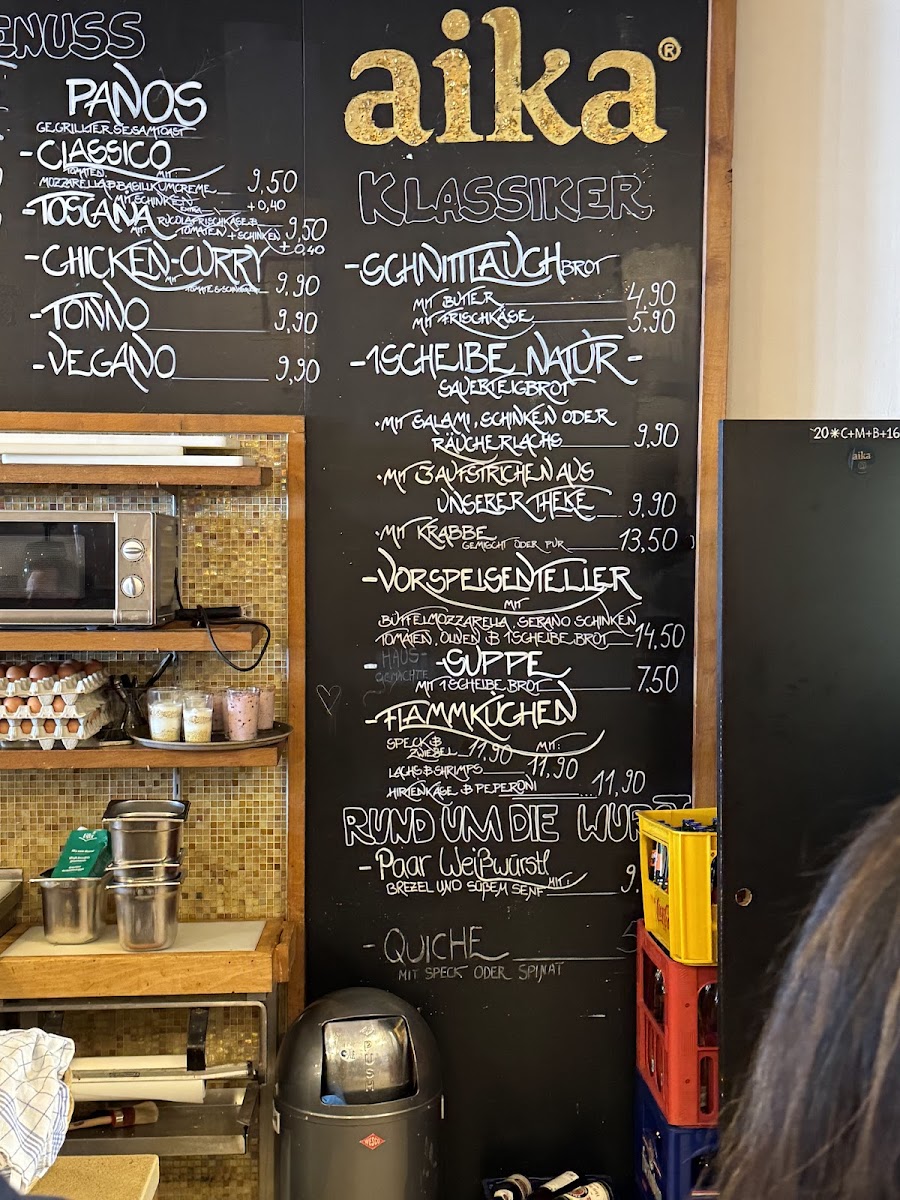 ENUSS
PANOS
GEGRILLTER SESAMTOAST
- CLASSICO
TOMATEN, MIT:
MOZZARELLA & BASILIKUMCREME 9,50
MIT SCHINKEN EXTRA +0,40
- TOSCANA
MIT: RUCOLA FRISCHKÄSE & TOMATEN 9,50
+ SCHINKEN +0,40
- CHICKEN-CURRY
MIT 9,90
- TONNO 9,90
- VEGANO 9,90
aika®
KLASSIKER
- SCHNITTLAUCHBROT
MIT BUTTER 4,90
MIT FRISCHKÄSE 5,90
- 1 SCHEIBE NATUR -
SAUERTEIGBROT
• MIT SALAMI, SCHINKEN ODER
RÄUCHERLACHS 9,90
• MIT 3 AUFSTRICHEN AUS
UNSERER THEKE 9,90
• MIT KRABBE
GEMISCHT ODER PUR 13,50
- VORSPEISENTELLER
MIT
BÜFFELMOZZARELLA, SERANO SCHINKEN
TOMATEN, OLIVEN & 1 SCHEIBE BROT 14,50
- HAUS-
GEMACHTE
- SUPPE
MIT 1 SCHEIBE BROT 7.50
- FLAMMKÜCHEN
MIT:
SPECK &
ZWIEBEL 11,90
LACHS & SHRIMPS 11,90
HIRTENKÄSE & PEPERONI 11,90
RUND UM DIE WURST
- Paar Weißwürstl
MIT:
BREZEL UND SÜßEM SENF 9.
- QUICHE 5
MIT SPECK ODER SPINAT
20*C+M+B+16
aika
PUSH
WESCO